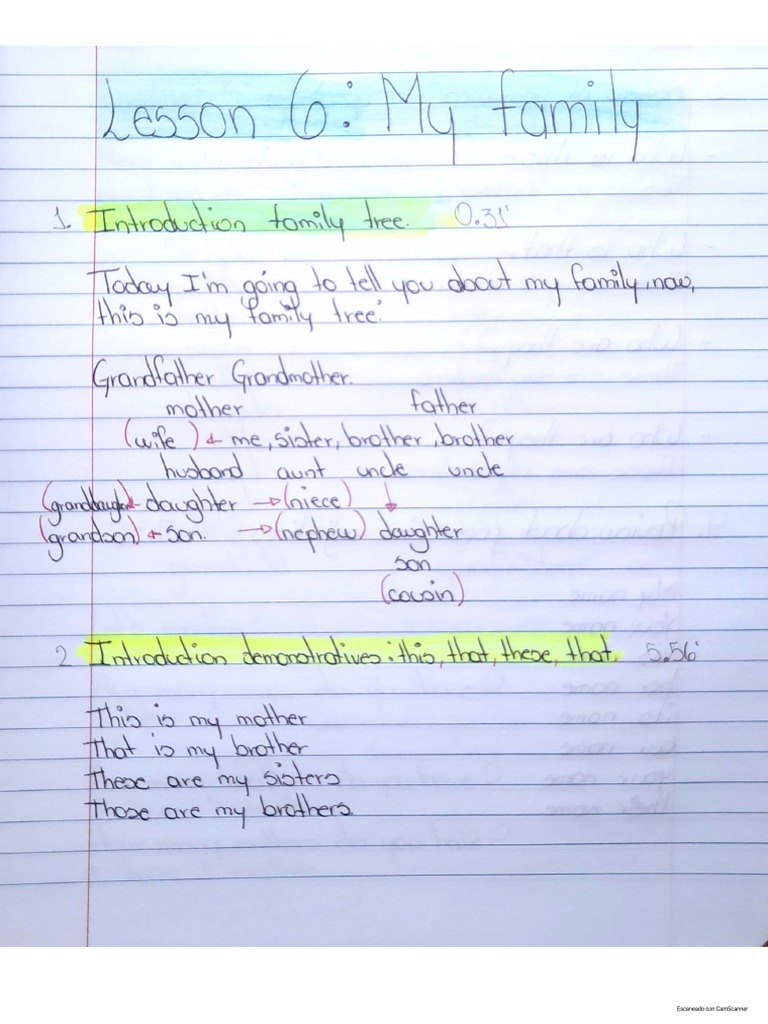 Lesson 6: My family
1. Introduction family tree. 0.31'
Today I'm going to tell you about my family, now,
this is my family tree:
Grandfather Grandmother.
mother father
(wife) ← me, sister, brother, brother
husband aunt uncle uncle
(granddaughter) ← daughter → (niece) ↓
(grandson) ← son. → (nephew) daughter
son
(cousin)
2 Introduction demonstratives: this, that, these, that. 5.56'
This is my mother
That is my brother
These are my sisters
Those are my brothers.
Escaneado con CamScanner